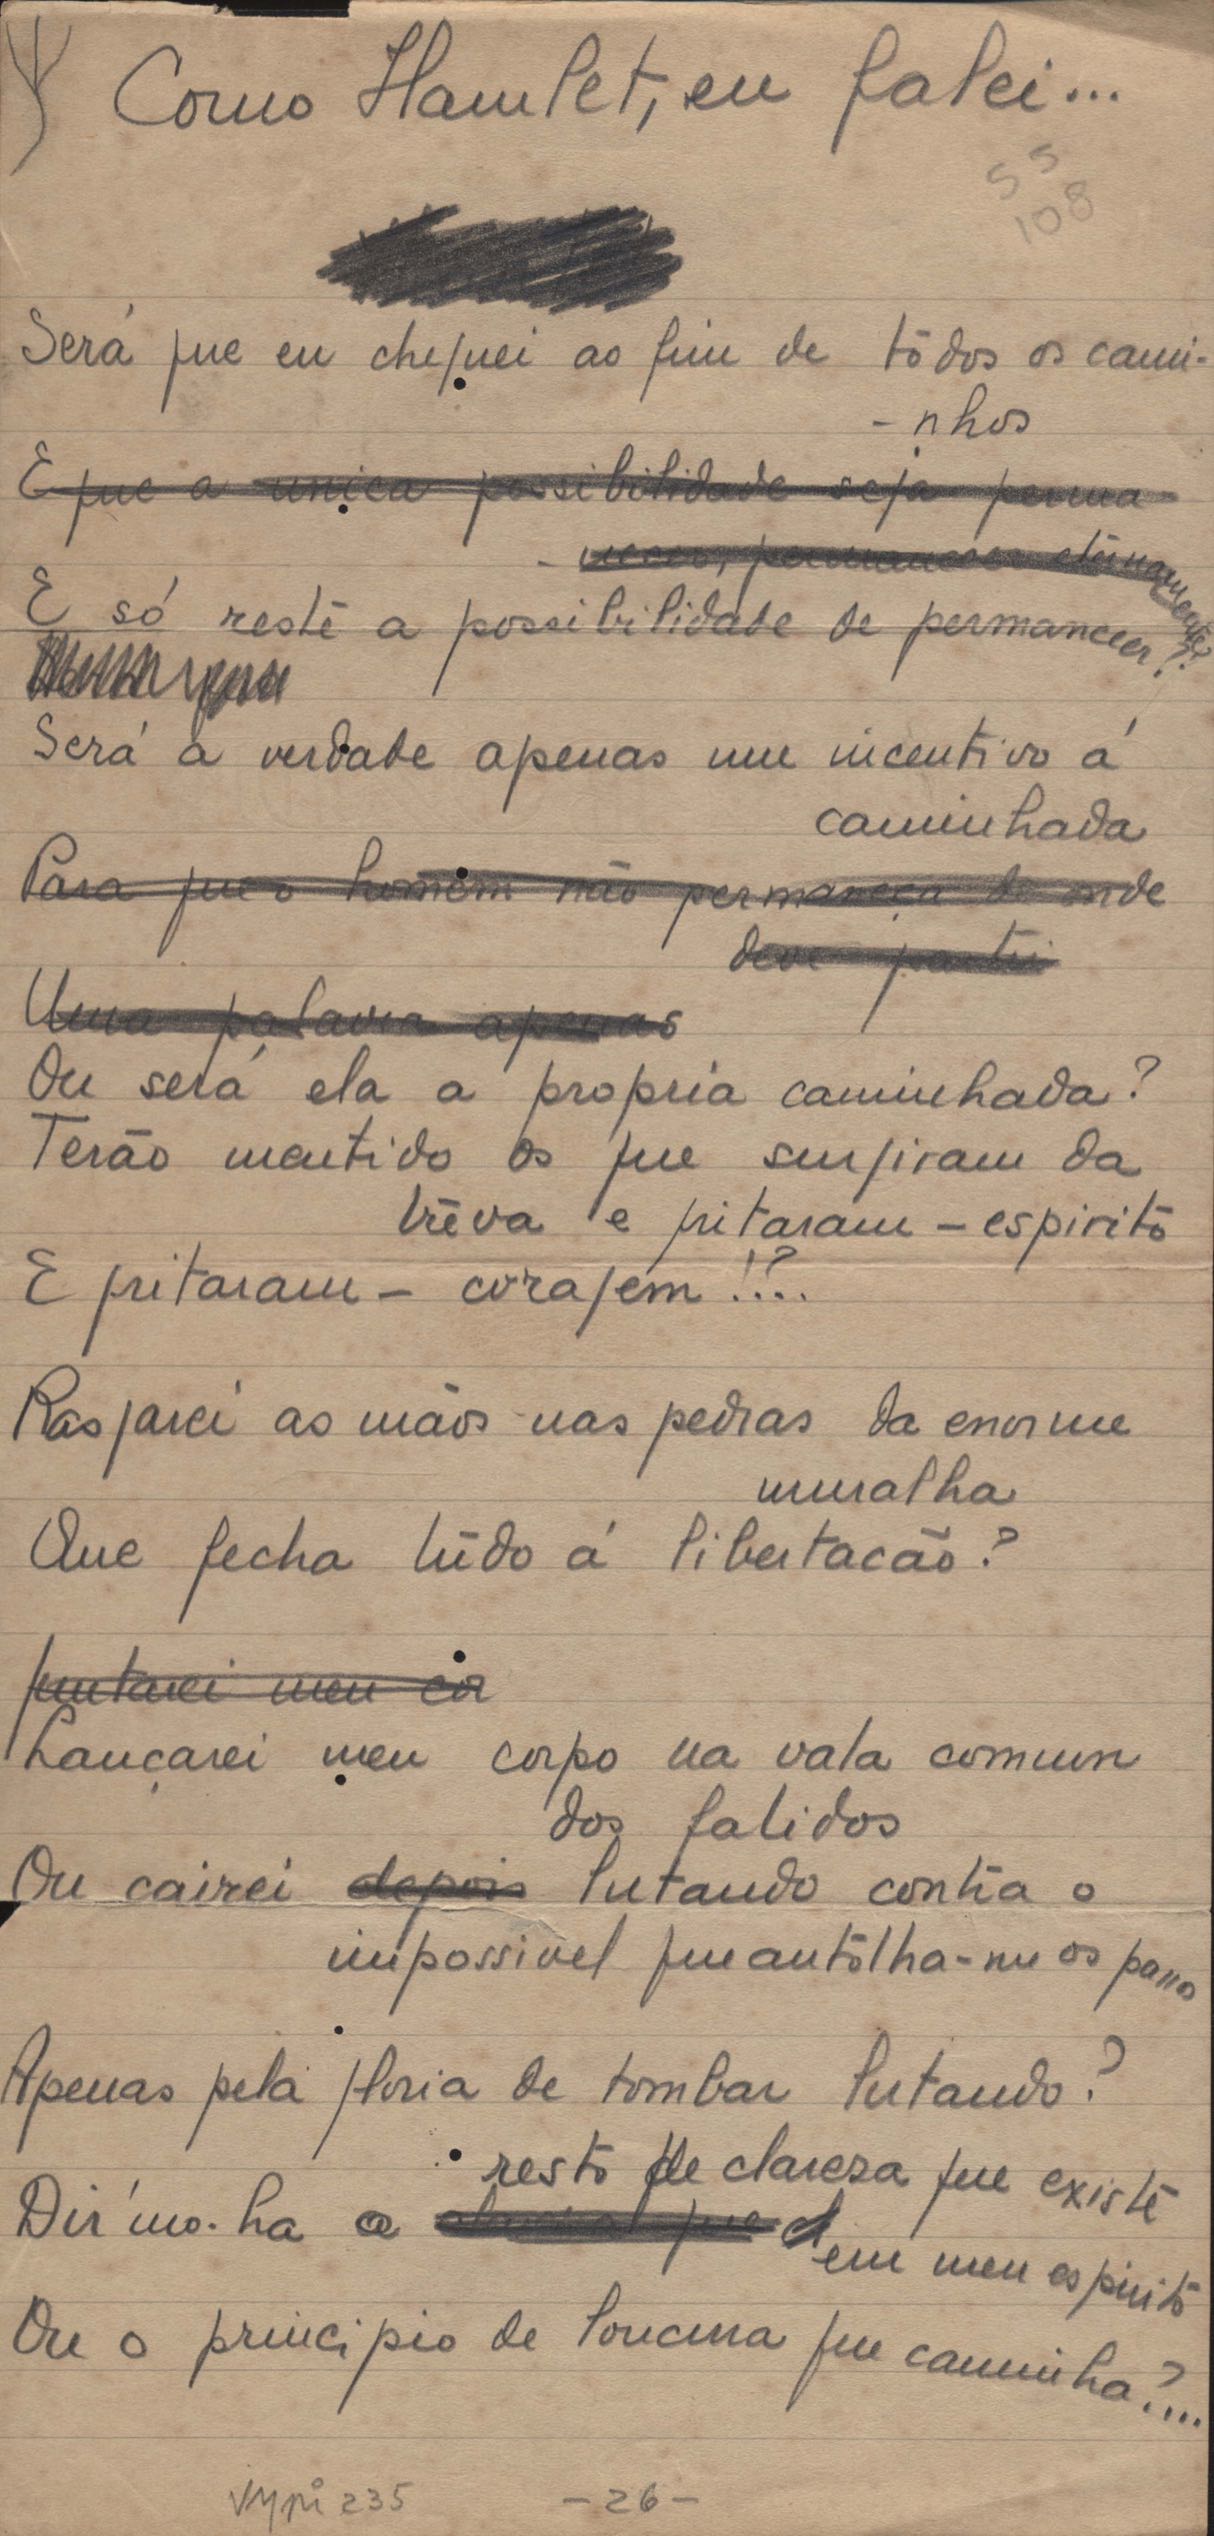 Como Hamlet, eu falei...
55
108
Será que eu cheguei ao fim de tôdos os cami-
-nhos
E que a unica possibilidade seja perma-
-necer, permanecer etérnamente?
E só reste a possibilidade de permanecer?
Será a verdade apenas um incentivo á
caminhada
Para que o homem não permaneça de onde
deve partir
Uma palavra apenas
Ou será ela a propria caminhada?
Terão mentido os que surgiram da
treva e gritaram - espirito
E gritaram - coragem!?...
Rasgarei as mãos nas pedras da enorme
muralha
Que fecha tudo á libertacão?
Juntarei meu cor
Lançarei meu corpo na vala comum
dos falidos
Ou cairei depois lutando contra o
impossivel que antolha-me os passos
Apenas pela gloria de tombar lutando?
resto de clareza que existe
Dir'mo-ha o
em meu espirito
Ou o principio de loucura que caminha?....
235 -26-